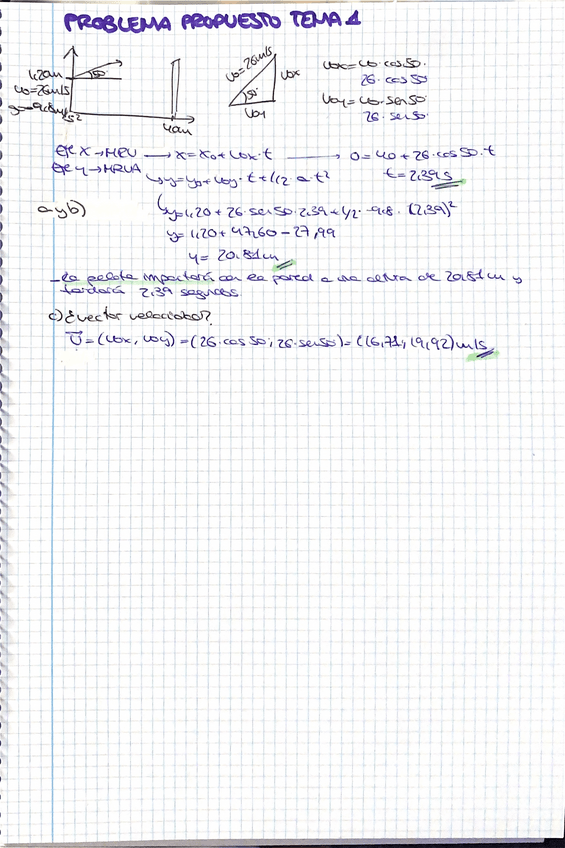 PROBLEMA PROPUESTO TEMA 1
1,20m
v0=26m/s
g=-9,8m/s2
50º
40m
v0=26m/s
50º
v0x
v0y
v0x=v0·cos50·
26·cos50
v0y=v0·sen50·
26·sen50
EJE X→MRU → x=x0+v0x·t → 0=40+26·cos50·t
EJE Y→MRUA → y=y0+v0y·t+1/2·a·t²
t=2,39s
a y b)
y=1,20+26·sen50·2,39+1/2·-9,8·(2,39)²
y=1,20+47,60-27,99
y=20,81m
-La pelota impactará con la pared a una altura de 20,81m y
tardará 2,39 segundos.
c) ¿vector velocidad?
v=(v0x, v0y)=(26·cos50; 26·sen50)=(16,71; 19,92)m/s